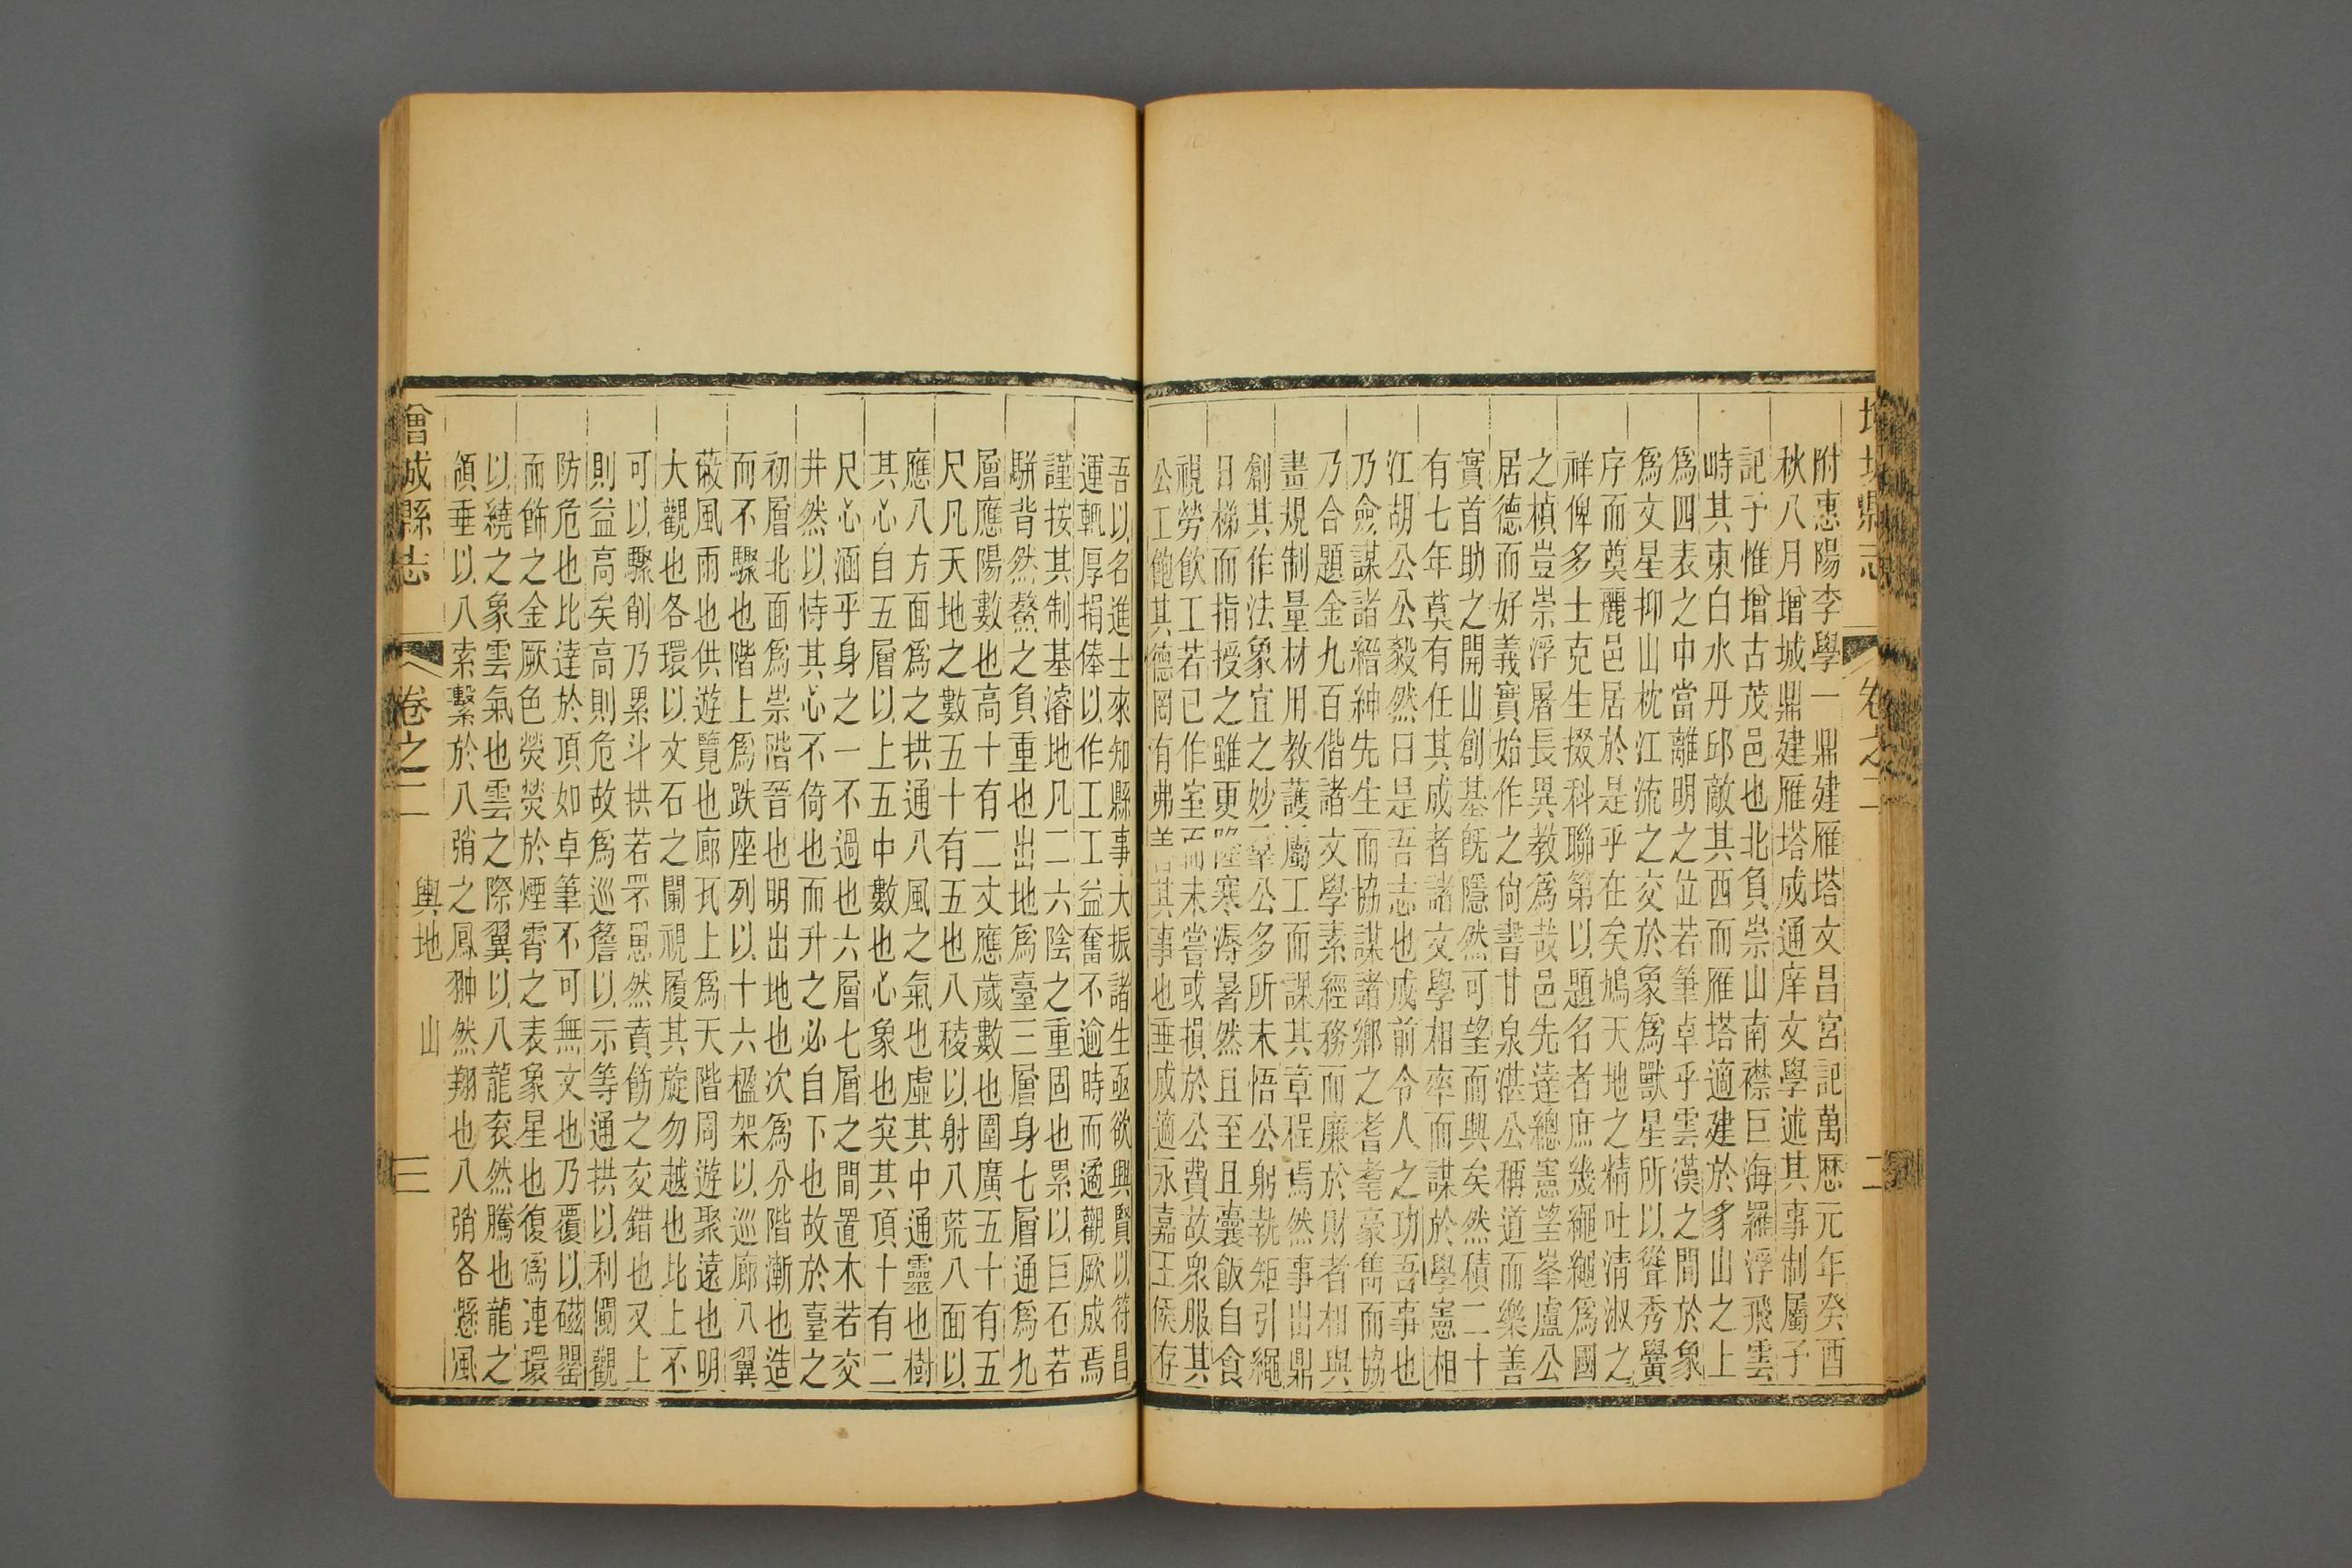 附惠陽李學一鼎建雁塔文昌宮記萬厯元年癸酉
秋八月增城鼎建雁塔成通庠文學述其事制屬子
記予惟增古茂邑也北負崇山南襟巨海羅浮飛雲
峙其東白水丹邱敵其西而雁塔適建於豸山之上
爲四表之中當離明之位若筆卓乎雲漢之間於象
爲文星抑山枕江流之交於象爲獸星所以聳秀黌
序而奠麗邑居於是乎在矣鳩天地之精吐淸淑之
祥俾多士克生掇科聯第以題名者庶幾繩繩爲國
之楨豈崇浮屠長異教爲哉邑先達總憲望峯盧公
居德而好義實始作之尙書甘泉湛公稱道而樂善
實首助之開山創基旣隱然可望而興矣然積二十
有七年莫有任其成者諸文學相率而謀於學憲相
江胡公公毅然曰是吾志也成前令人之功吾事也
乃僉謀諸縉紳先生而協謀諸鄉之耆耄豪雋而協
乃合題金九百偕諸文學素經務而廉於財者相與
畫規制量材用教護屬工而課其章程焉然事出鼎
創其作法象宜之妙羣公多所未悟公躬執矩引繩
日梯而指授之雖更隆寒溽暑然且至且囊飯自食
視勞飲工若已作室而未嘗或損於公費故衆服其
公工飽其德罔有弗 其事也垂成適永嘉王侯存
增城縣志 卷之二 二
吾以名進士來知縣事大振諸生亟欲興賢以符昌
運輒厚捐俸以作工工益奮不逾時而遹觀厥成焉
謹按其制基濬地凡二六陰之重固也累以巨石若
駢背然鰲之負重也出地爲臺三層身七層通爲九
層應陽數也高十有二丈應歲數也圍廣五十有五
尺凡天地之數五十有五也八稜以射八荒八面以
應八方面爲之拱通八風之氣也虛其中通靈也樹
其心自五層以上五中數也心象也突其頂十有二
尺心涵乎身之一不過也六層七層之間置木若交
井然以恃其心不倚也而升之必自下也故於臺之
初層北面爲崇階晉也明出地也次爲分階漸也造
而不驟也階上爲跌座列以十六楹架以巡廊八翼
蔽風雨也供遊覽也廊瓦上爲天階周遊聚遠也明
大觀也各環以文石之闌視履其旋勿越也比上不
可以驟削乃累斗拱若罘罳然賁餙之交錯也叉上
則益高矣高則危故爲巡簷以示等通拱以利闚觀
防危也比達於頂如卓筆不可無文也乃覆以磁罌
而飾之金厥色熒熒於煙霄之表象星也復爲連環
以繞之象雲氣也雲之際翼以八龍衮然騰也龍之
頷垂以八索繫於八弰之鳳翀然翔也八弰各懸風
增城縣志 卷之二 輿地 山 三